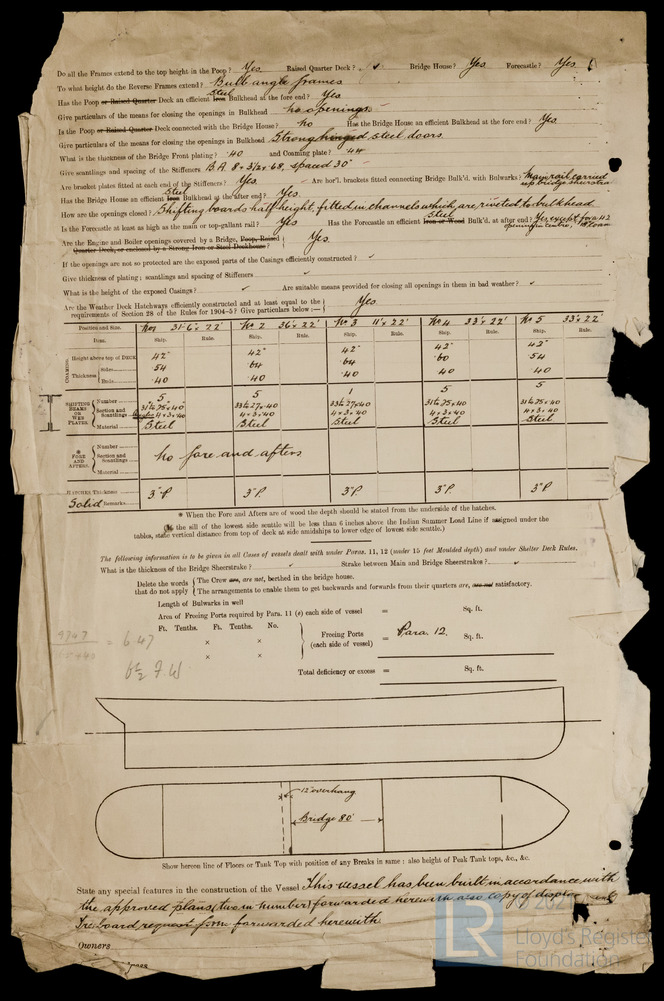 Do all the Frames extend to the top height in the Poop? Yes Raised Quarter Deck? ✓ Bridge House? Yes Forecastle? Yes
To what height do the Reverse Frames extend? Bulb angle frames
Has the Poop or Raised Quarter Deck an efficient Iron Steel Bulkhead at the fore end? Yes
Give particulars of the means for closing the openings in Bulkhead no openings
Is the Poop or Raised Quarter Deck connected with the Bridge House? no Has the Bridge House an efficient Bulkhead at the fore end? Yes
Give particulars of the means for closing the openings in Bulkhead Strong hinged steel doors
What is the thickness of the Bridge Front plating? .40 and Coaming plate? .44
Give scantlings and spacing of the Stiffeners B.A. 8 × 3½ × .68, spaced 30"
Are bracket plates fitted at each end of the Stiffeners? Yes Are hor'l. brackets fitted connecting Bridge Bulk'd. with Bulwarks? Main rail carried
up bridge sheerstra
Has the Bridge House an efficient Iron Steel Bulkhead at the after end? Yes
How are the openings closed? Shifting boards half height, fitted in channels which are riveted to bulkhead
Is the Forecastle at least as high as the main or top-gallant rail? Yes Has the Forecastle an efficient Iron or Wood Steel Bulk'd. at after end? Yes, except for
opening in centre,
Are the Engine and Boiler openings covered by a Bridge, Poop, Raised
Quarter Deck, or enclosed by a Strong Iron or Steel Deckhouse? Yes.
If the openings are not so protected are the exposed parts of the Casings efficiently constructed? ✓
Give thickness of plating; scantlings and spacing of Stiffeners ✓
What is the height of the exposed Casings? ✓ Are suitable means provided for closing all openings in them in bad weather? ✓
Are the Weather Deck Hatchways efficiently constructed and at least equal to the
requirements of Section 28 of the Rules for 1904-5? Give particulars below:— Yes
Position and Size. No 1 31'-6" × 22' No 2 36' × 22' No 3 11' × 22' No 4 33' × 22' No 5 33' × 22'
Item. Ship. Rule. Ship. Rule. Ship. Rule. Ship. Rule. Ship. Rule.
COAMING. Height above top of DECK 42" 42" 42" 42" 42"
Thickness Sides .54 .64 .64 .60 .54
Ends .40 .40 .40 .40 .40
SHIFTING BEAMS OR WEB PLATES. Number 5 5 1 5 5
Section and Scantlings 31½ × 75 × 40 33½ × 27 × 40 33½ × 27 × 40 31½ × 75 × 40 31½ × 75 × 40
4 × 3 × .40 4 × 3 × .40 4 × 3 × .40 4 × 3 × .40 4 × 3 × .40
Material Steel Steel Steel Steel Steel
* FORE AND AFTERS. Number
Section and Scantlings no fore and afters
Material
HATCHES Thickness 3" P 3" P. 3" P 3" P. 3" P
Solid Remarks
* When the Fore and Afters are of wood the depth should be stated from the underside of the hatches.
(If the sill of the lowest side scuttle will be less than 6 inches above the Indian Summer Load Line if assigned under the
tables, state vertical distance from top of deck at side amidships to lower edge of lowest side scuttle.)
The following information is to be given in all Cases of vessels dealt with under Paras. 11, 12 (under 15 feet Moulded depth) and under Shelter Deck Rules.
What is the thickness of the Bridge Sheerstrake? ✓ Strake between Main and Bridge Sheerstrakes? ✓
Delete the words that do not apply
The Crew are, are not, berthed in the bridge house.
The arrangements to enable them to get backwards and forwards from their quarters are, are not satisfactory.
Length of Bulwarks in well
Area of Freeing Ports required by Para. 11 (e) each side of vessel = Sq. ft.
Ft. Tenths. Ft. Tenths. No.
× ×
× ×
Freeing Ports (each side of vessel) = Para. 12. Sq. ft.
= 6.47
6½ F.W
Total deficiency or excess = Sq. ft.
12" overhang
Bridge 80'
Show hereon line of Floors or Tank Top with position of any Breaks in same; also height of Peak Tank tops, &c., &c.
State any special features in the construction of the Vessel This vessel has been built in accordance with
the approved plans (two in number) forwarded herewith also copy of
Freeboard request form forwarded herewith
Owners
LR
Lloyd's Register
Foundation